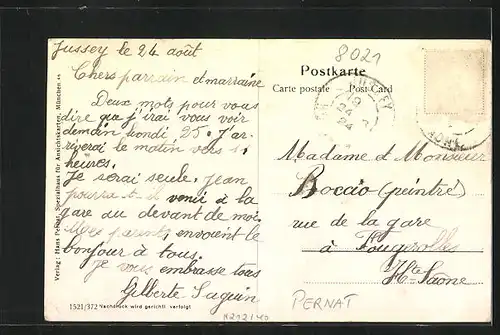 Jussey le 24 août
Chers parrain et marraine
Deux mots pour vous
dire que j'irai vous voir
demain lundi 25. J'ar-
riverai le matin vers
heures.
Je serai seule, jean
pourra t-il venir à la
gare au devant de moi.
Mes parents, envoient le
bonjour à tous.
Je vous embrasse tous
Gilberte Saguin
Verlag: Hans Pernat, Spezialhaus für Ansichtskarten, München
1521/372 Nachdruck wird gerichtl. verfolgt
8021
Postkarte
Carte postale Post Card
JUSSEY
24
Madame et Monsieur
Boccio (peintre)
rue de la gare
à Fougerolles
Hte Saône
PERNAT